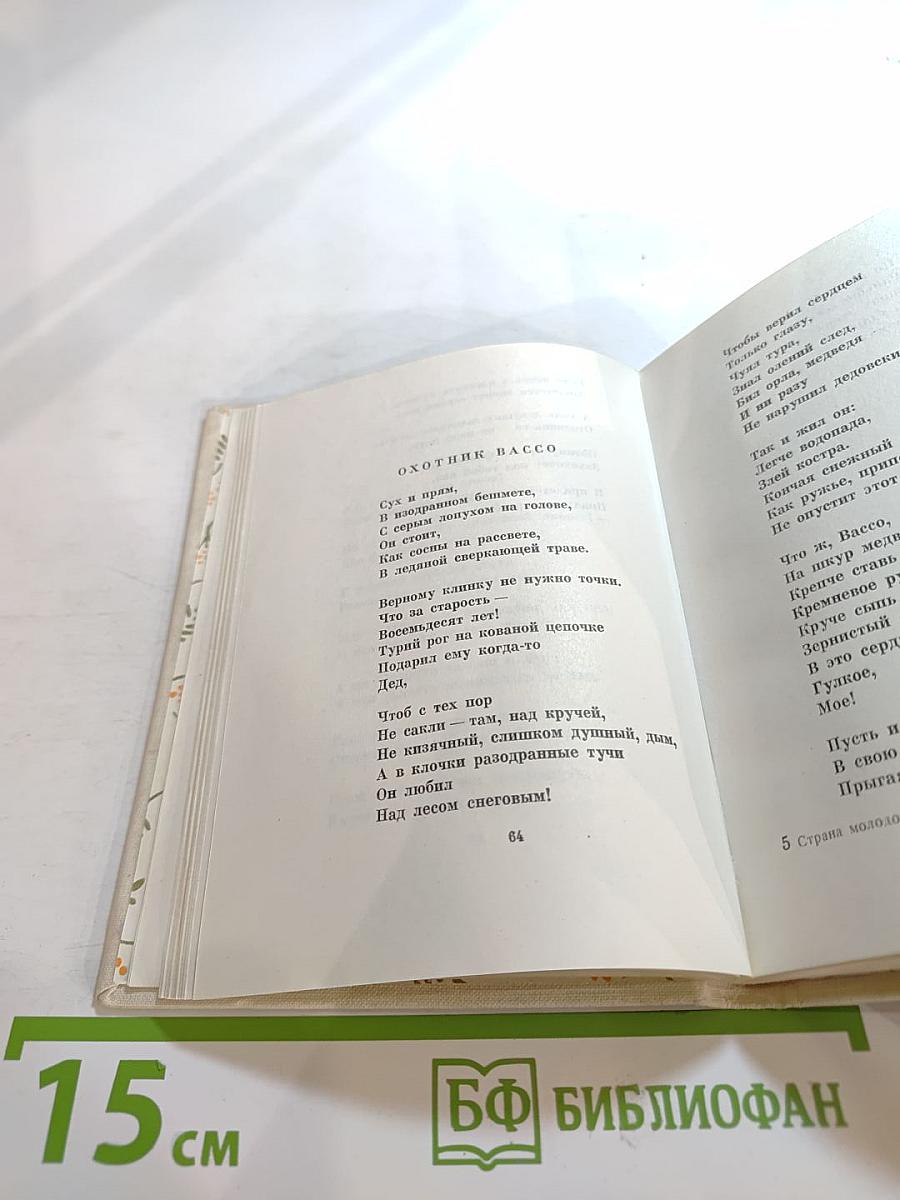 ОХОТНИК ВАССО
Сух и прям,
В изодранном бешмете,
С серым лопухом на голове,
Он стоит,
Как сосны на рассвете,
В ледяной сверкающей траве.
Верному клинку не нужно точки.
Что за старость —
Восемьдесят лет!
Турий рог на кованой цепочке
Подарил ему когда-то
Дед,
Чтоб с тех пор
Не сакли — там, над кручей,
Не кизячный, слишком душный, дым,
А в клочки разодранные тучи
Он любил
Над лесом снеговым!
64
Чтобы верил сердцем
Только глазу,
Чуял тура,
Знал олений след,
Бил орла, медведя —
И ни разу
Не нарушил дедовски
Так и жил он:
Легче водопада,
Злей костра.
Кончая снежный
Как ружье,
Не опустит этот
Что ж, Вассо,
На шкур
Крепче ставь
Кремневое
Круче сыпь
Зернистый
В это
Гулкое,
Мое!
Пусть
В свою
5 Страна
15 см
БФ БИБЛИОФАН